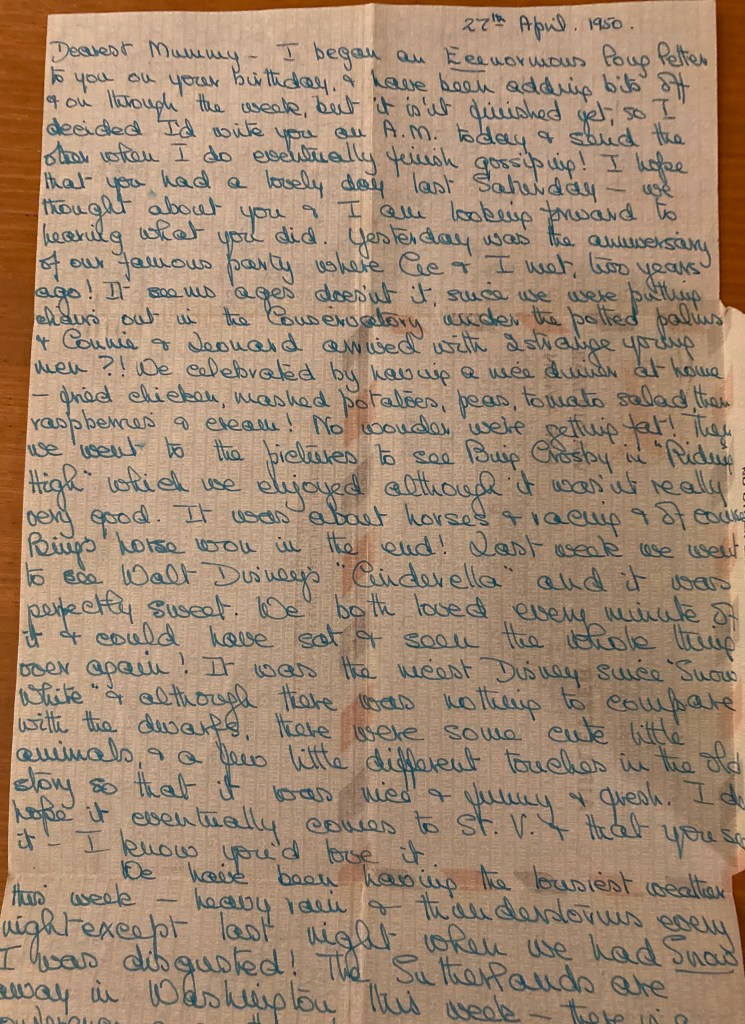 27th April. 1950.
Dearest Mummy - I began an Eeenormous long letter
to you on your birthday, & have been adding bits off
& on through the week, but it isn't finished yet, so I
decided I'd write you an A.M. today & send the
other when I do eventually finish gossiping! I hope
that you had a lovely day last Saturday - we
thought about you & I am looking forward to
hearing what you did. Yesterday was the anniversary
of our famous party where Cec & I met, two years
ago! It seems ages doesn't it, since we were putting
chairs out in the Conservatory under the potted palms
& Connie & Leonard arrived with 2 strange young
men ?! We celebrated by having a nice dinner at home
- fried chicken, mashed potatoes, peas, tomato salad then
raspberries & cream! No wonder we're getting fat! Then
we went to the pictures to see Bing Crosby in "Riding
High" which we enjoyed although it wasn't really
very good. It was about horses & racing & of course
Bing's horse won in the end! Last week we went
to see Walt Disney's "Cinderella" and it was
perfectly sweet. We both loved every minute of
it & could have sat & seen the whole thing
over again! It was the nicest Disney since "Snow
White" & although there was nothing to compare
with the dwarfs, there were some cute little
animals, & a few little different touches in the old
story so that it was nice & funny & fresh. I do
hope it eventually comes to St. V. & that you see
it - I know you'd love it.
We have been having the lousiest weather
this week - heavy rain & thunderstorms every
night except last night when we had Snow
I was disgusted! The Sutherlands are
away in Washington this week - there is a